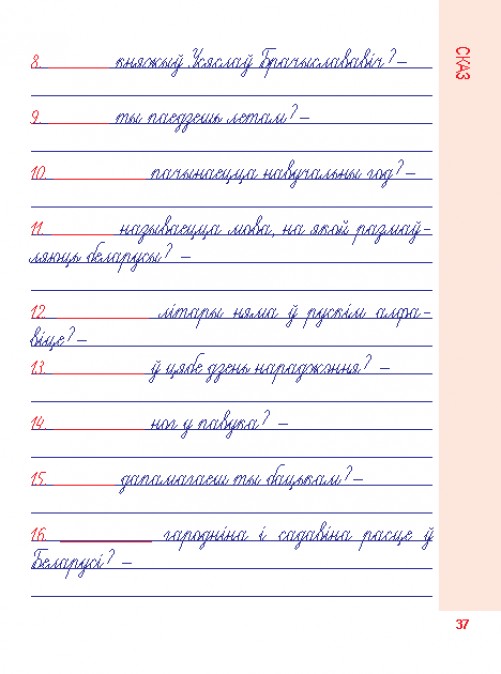 СКАЗ
8. княжыў Усяслаў Брачыслававіч? –
9. ты паедзешь летам? –
10. пачынаецца навучальны год? –
11. называецца мова, на якой размаў-
ляюць беларусы? –
12. літары няма ў рускім алфа-
віце? –
13. ў цябе дзень нараджэння? –
14. ног у павука? –
15. дапамагаеш ты бацькам? –
16. гародніна і садавіна расце ў
Беларусі? –
37